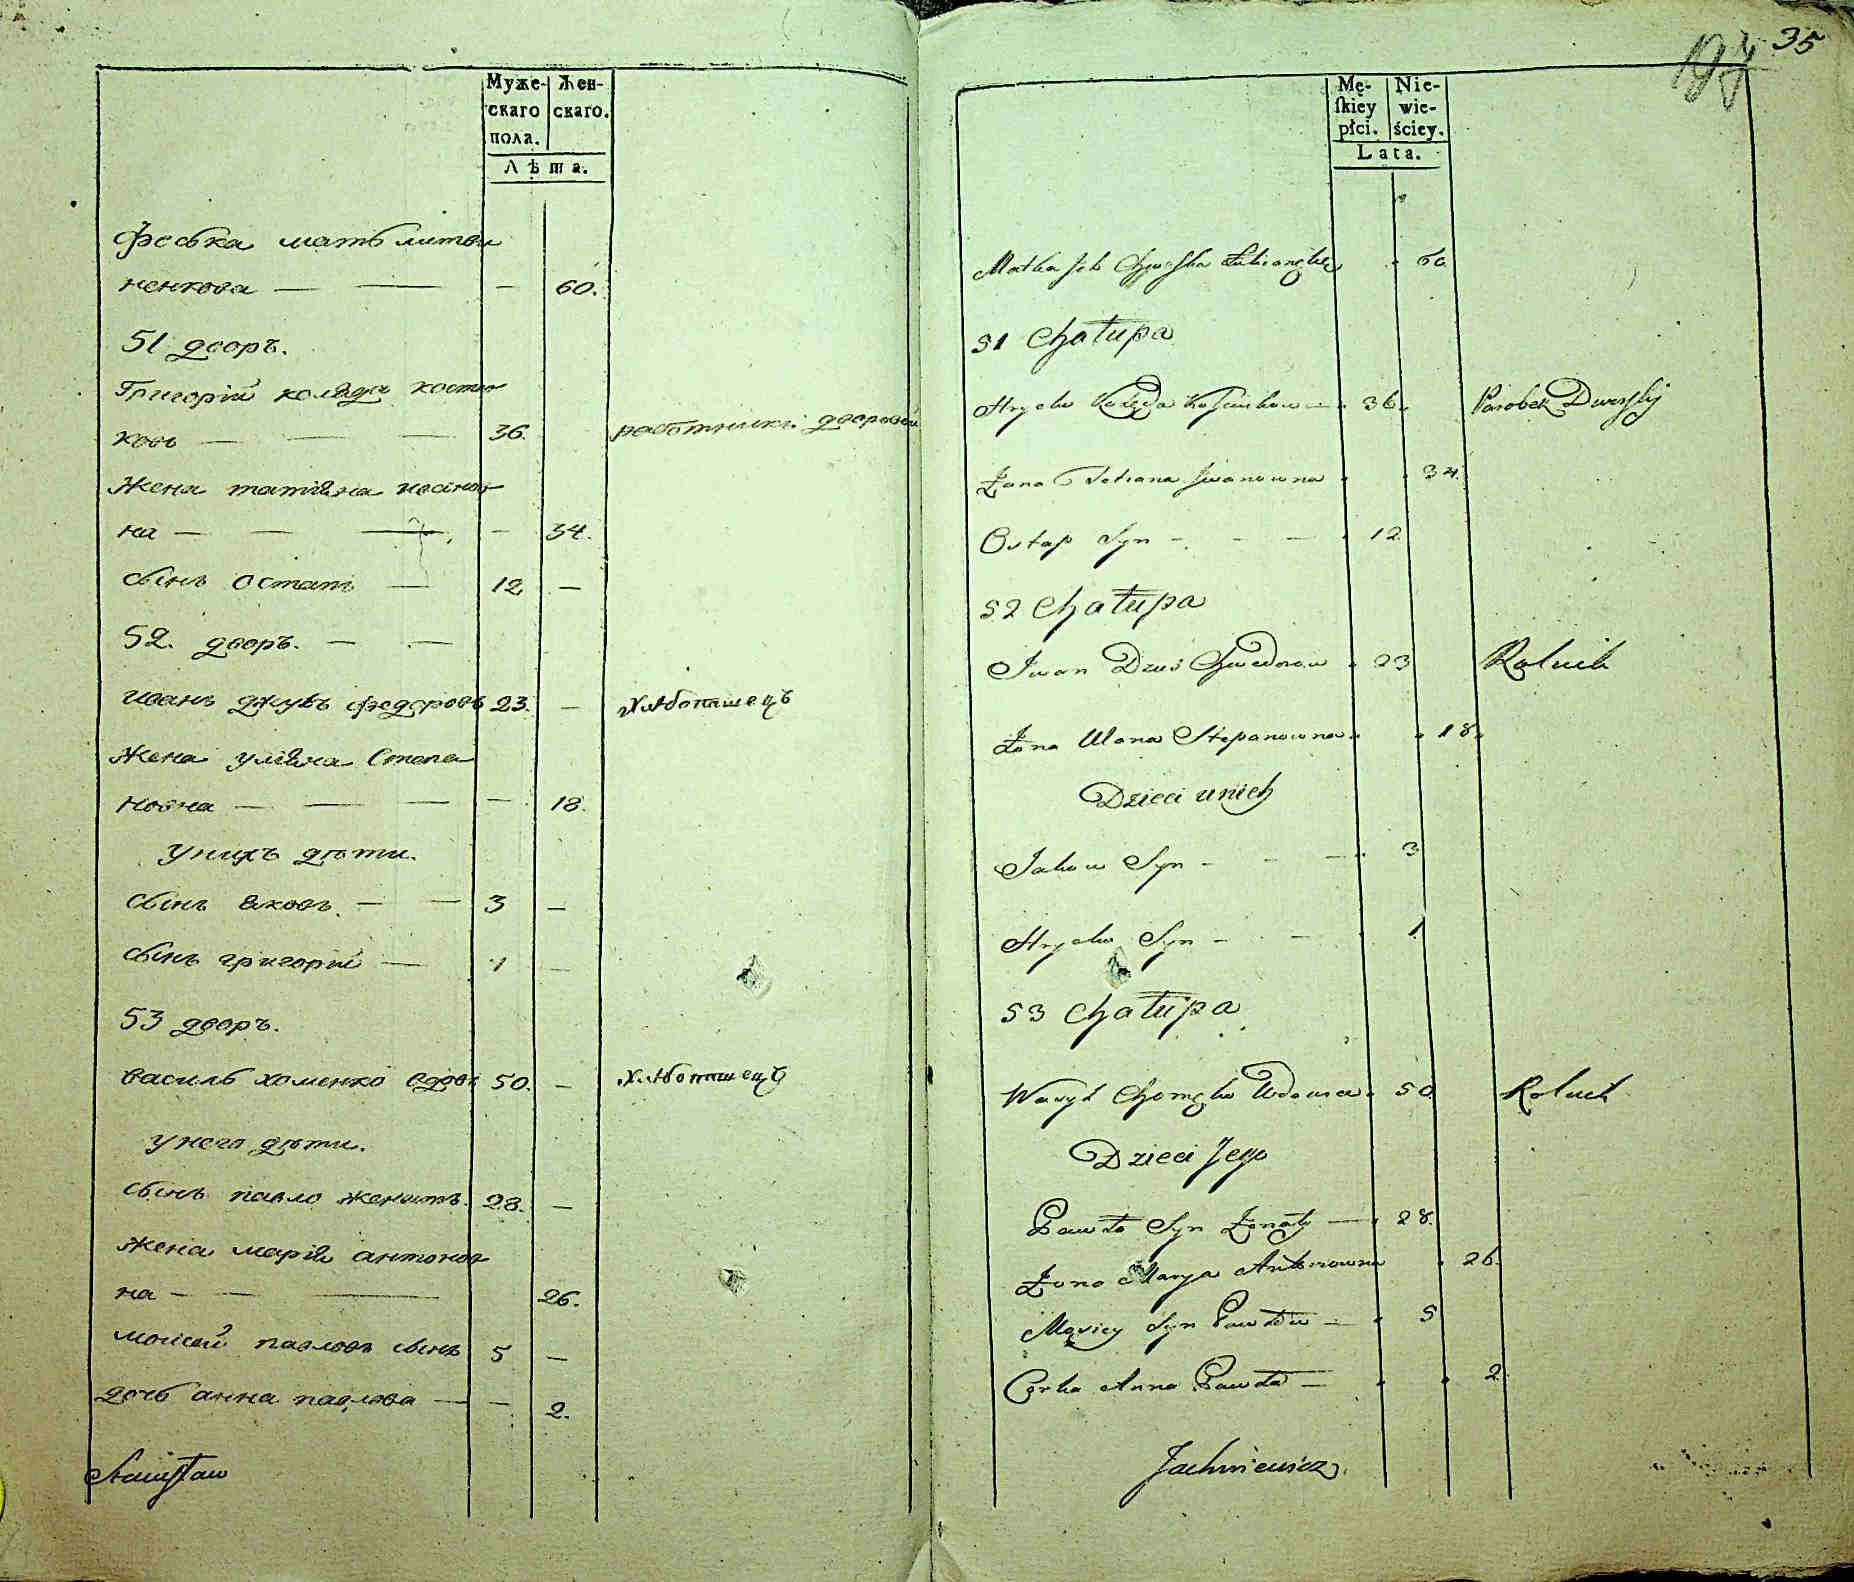 Муже-
скаго
пола.
Жен-
скаго.
Лѣта.
Феська мать литви
ненкова — — — 60.
51 дворъ.
Григорій коляда костю
ковъ — — — 36. работникъ дворовой
Жена татіяна иванов
на — — — 34.
сынъ Остапъ — 12 —
52. дворъ. — —
иванъ джусъ федоровъ 23. — хлѣбопашецъ
жена уліяна Степа
новна — — — — 18.
У нихъ дѣти.
сынъ яковъ. — — 3 —
сынъ григорій — 1 —
53 дворъ.
василь хоменко вдовъ 50. — хлѣбопашецъ
у него дѣти.
сынъ павло женатъ. 28. —
жена марія антонов
на — — — 26.
моисей павловъ сынъ 5 —
дочь анна павлова — — 2.
Stanisław
197 35
Mę-
skiey
płci.
Nie-
wie-
ściey.
Lata.
Matka Ich 60
51 Chałupa
Hryćko Kolęda 36 Parobek Dworski
Żona Tatiana Iwanowna 34.
Ostap Syn - - — 12
52 Chałupa
Iwan Dzus Chwedorow 23 Rolnik
Żona Ulana Stepanowna 18
Dzieci u nich
Jakow Syn - - — 3
Hryćko Syn - — 1
53 Chałupa
Wasyl Chomenko Wdowiec 50 Rolnik
Dzieci Jego
Pawło Syn Żonaty — 28.
Żona Marya Antonowna 26.
Moysiey Syn Pawłow — 5
Corka Anna Pawła — 2
Jachniewicz